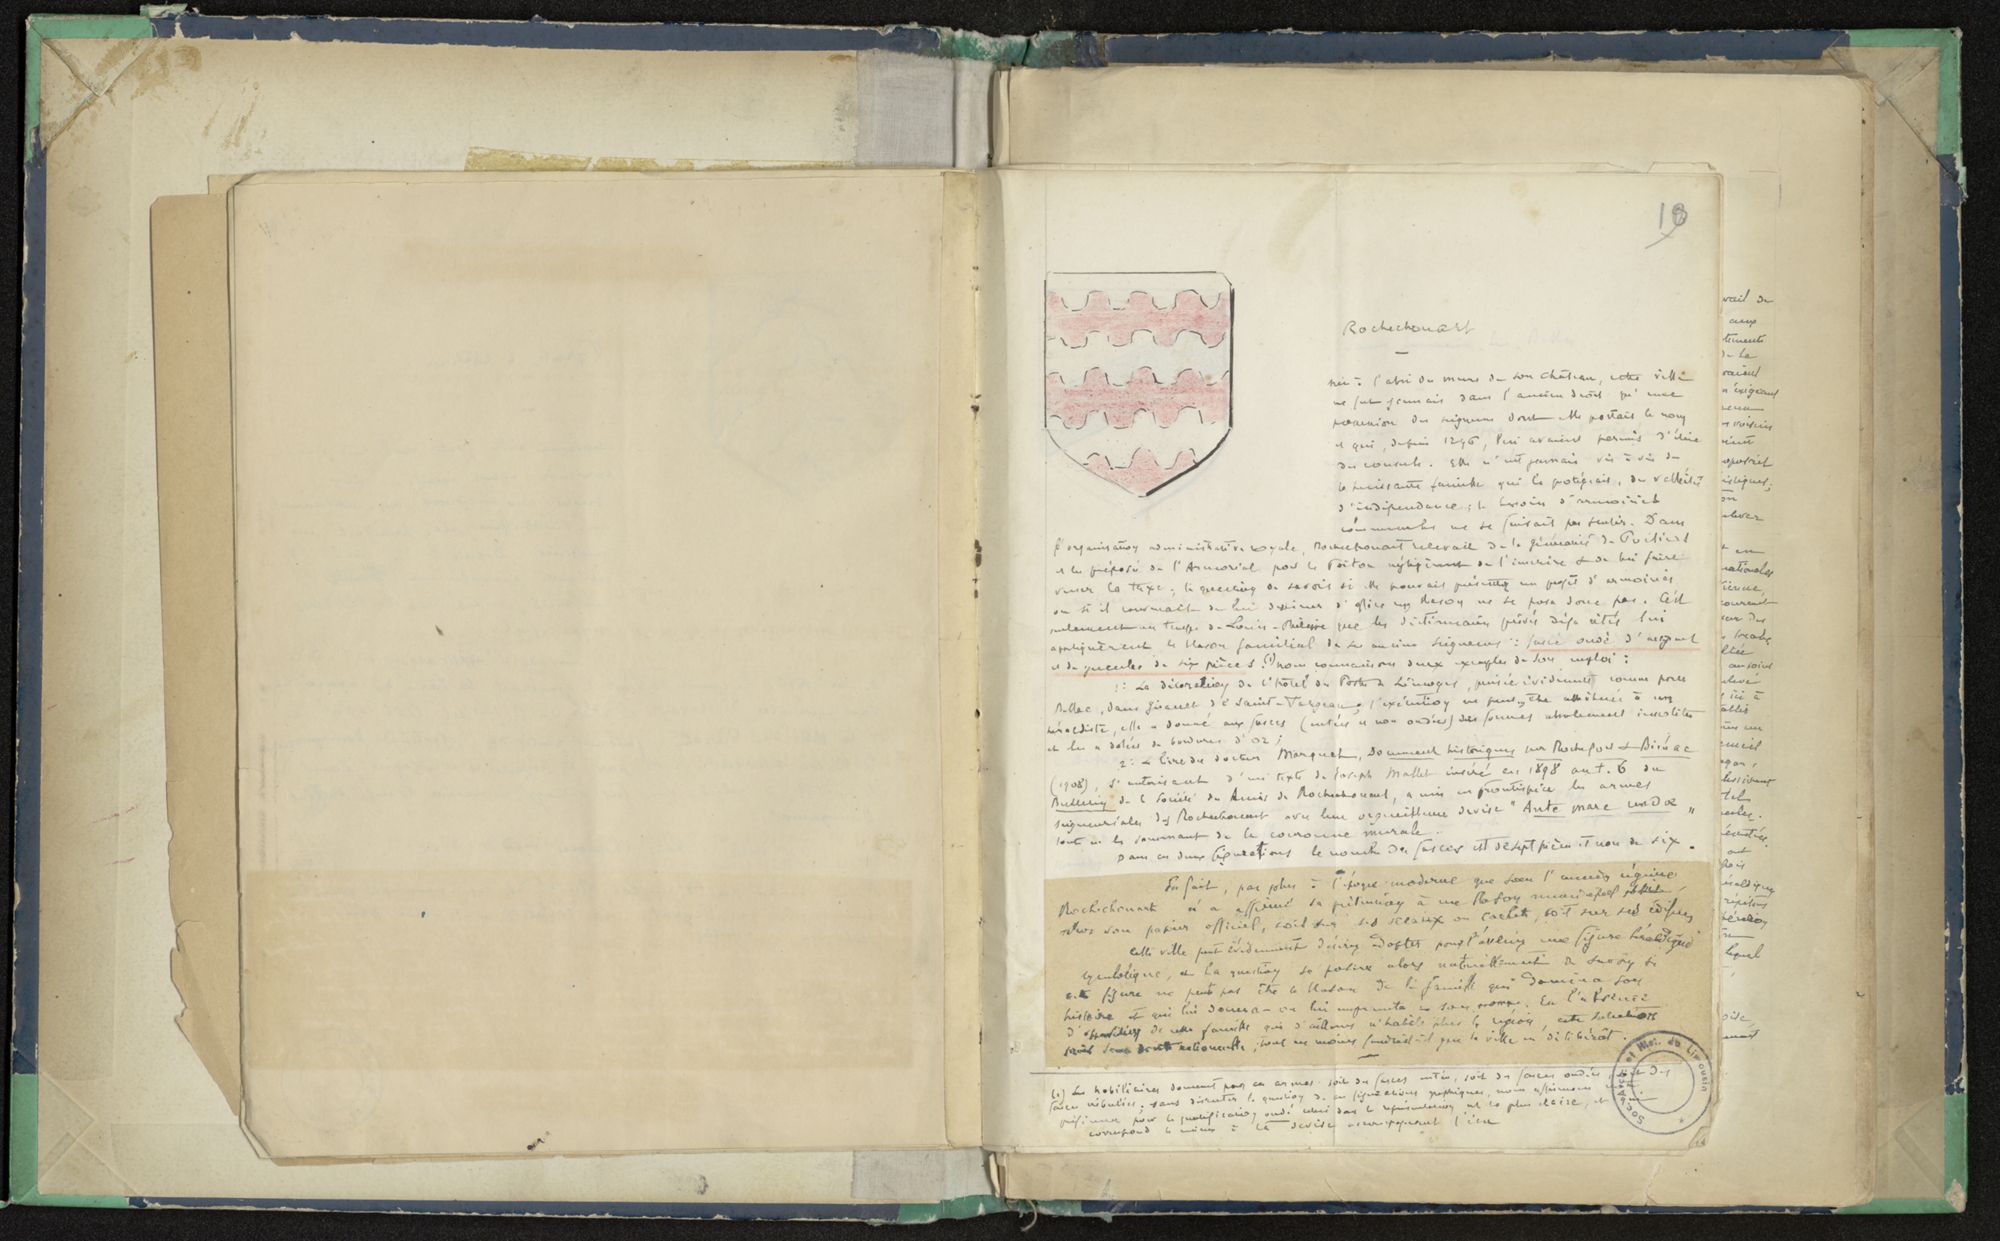 18
Rochechouart
née à l'abri des murs de son château, cette ville
ne fut jamais dans l'ancien droit qu'une
possession des seigneurs dont elle portait le nom
et qui, depuis 1296, lui avaient permis d'élire
des consuls. Elle n'eut jamais vis à vis de
la puissante famille qui la protégeait, de velléités
d'indépendance; le besoin d'armoiries
communales ne se faisait pas sentir. Dans
l'organisation administrative royale, Rochechouart relevait de la généralité de Poitiers
et les préposés de l'Armorial pour le Poitou négligèrent de l'inscrire et de lui faire
verser la taxe; la question de savoir si elle pouvait présenter un projet d'armoiries
ou si il convenait de lui dessiner d'office un blason ne se posa donc pas. C'est
seulement au temps de Louis-Philippe que les dictionnaires privés déjà cités lui
appliquèrent le blason familial de ses anciens seigneurs : fascé ondé d'argent
et de gueules de six pièces. (1) nous connaissons deux exemples de son emploi :
1: La décoration de l'hôtel des Postes de Limoges, puisée évidemment comme pour
Bellac, dans Girault de Saint-Fargeau; l'exécution ne peut être attribuée à un
héraldiste, elle a donné aux fasces (entées et non ondées) des formes absolument insolites
et les a dotées de bordures d'or;
2: le livre du docteur Marquet, Documents historiques sur Rochefort et Biénac
(1908), s'autorisant d'un texte de Joseph Mallet inséré en 1898 au t. 6 du
Bulletin de la Société des Amis de Rochechouart, a mis en frontispice les armes
seigneuriales des Rochechouart avec leur orgueilleuse devise "Ante mare undae"
tout en les sommant de la couronne murale.
Dans ces deux figurations le nombre des fasces est de sept pièces et non de six.
En fait, pas plus à l'époque moderne que sous l'ancien régime
Rochechouart n'a affirmé sa prétention à un blason municipal
sur son papier officiel, soit sur ses sceaux ou cachets, soit sur ses édifices
Cette ville peut évidemment désirer adopter pour l'avenir une figure héraldique
symbolique, et la question se posera alors naturellement de savoir si
cette figure ne peut pas être le blason de la famille qui domina son
histoire et qui lui donna ou lui emprunta son nom. En l'absence
d'opposition de cette famille qui d'ailleurs n'habite plus la région, cette solution
serait sans doute rationnelle, tout au moins faudrait-il que la ville en délibérât.
(1) Les nobiliaires donnent pour ces armes soit des fasces entées, soit des fasces ondées, soit des
fasces nébulées; sans discuter la question de ces figurations graphiques, nous
préférence pour la qualification ondé dont la représentation est la plus claire, et
correspond le mieux à la devise accompagnant l'écu
Société Arch. et Hist. du Limousin